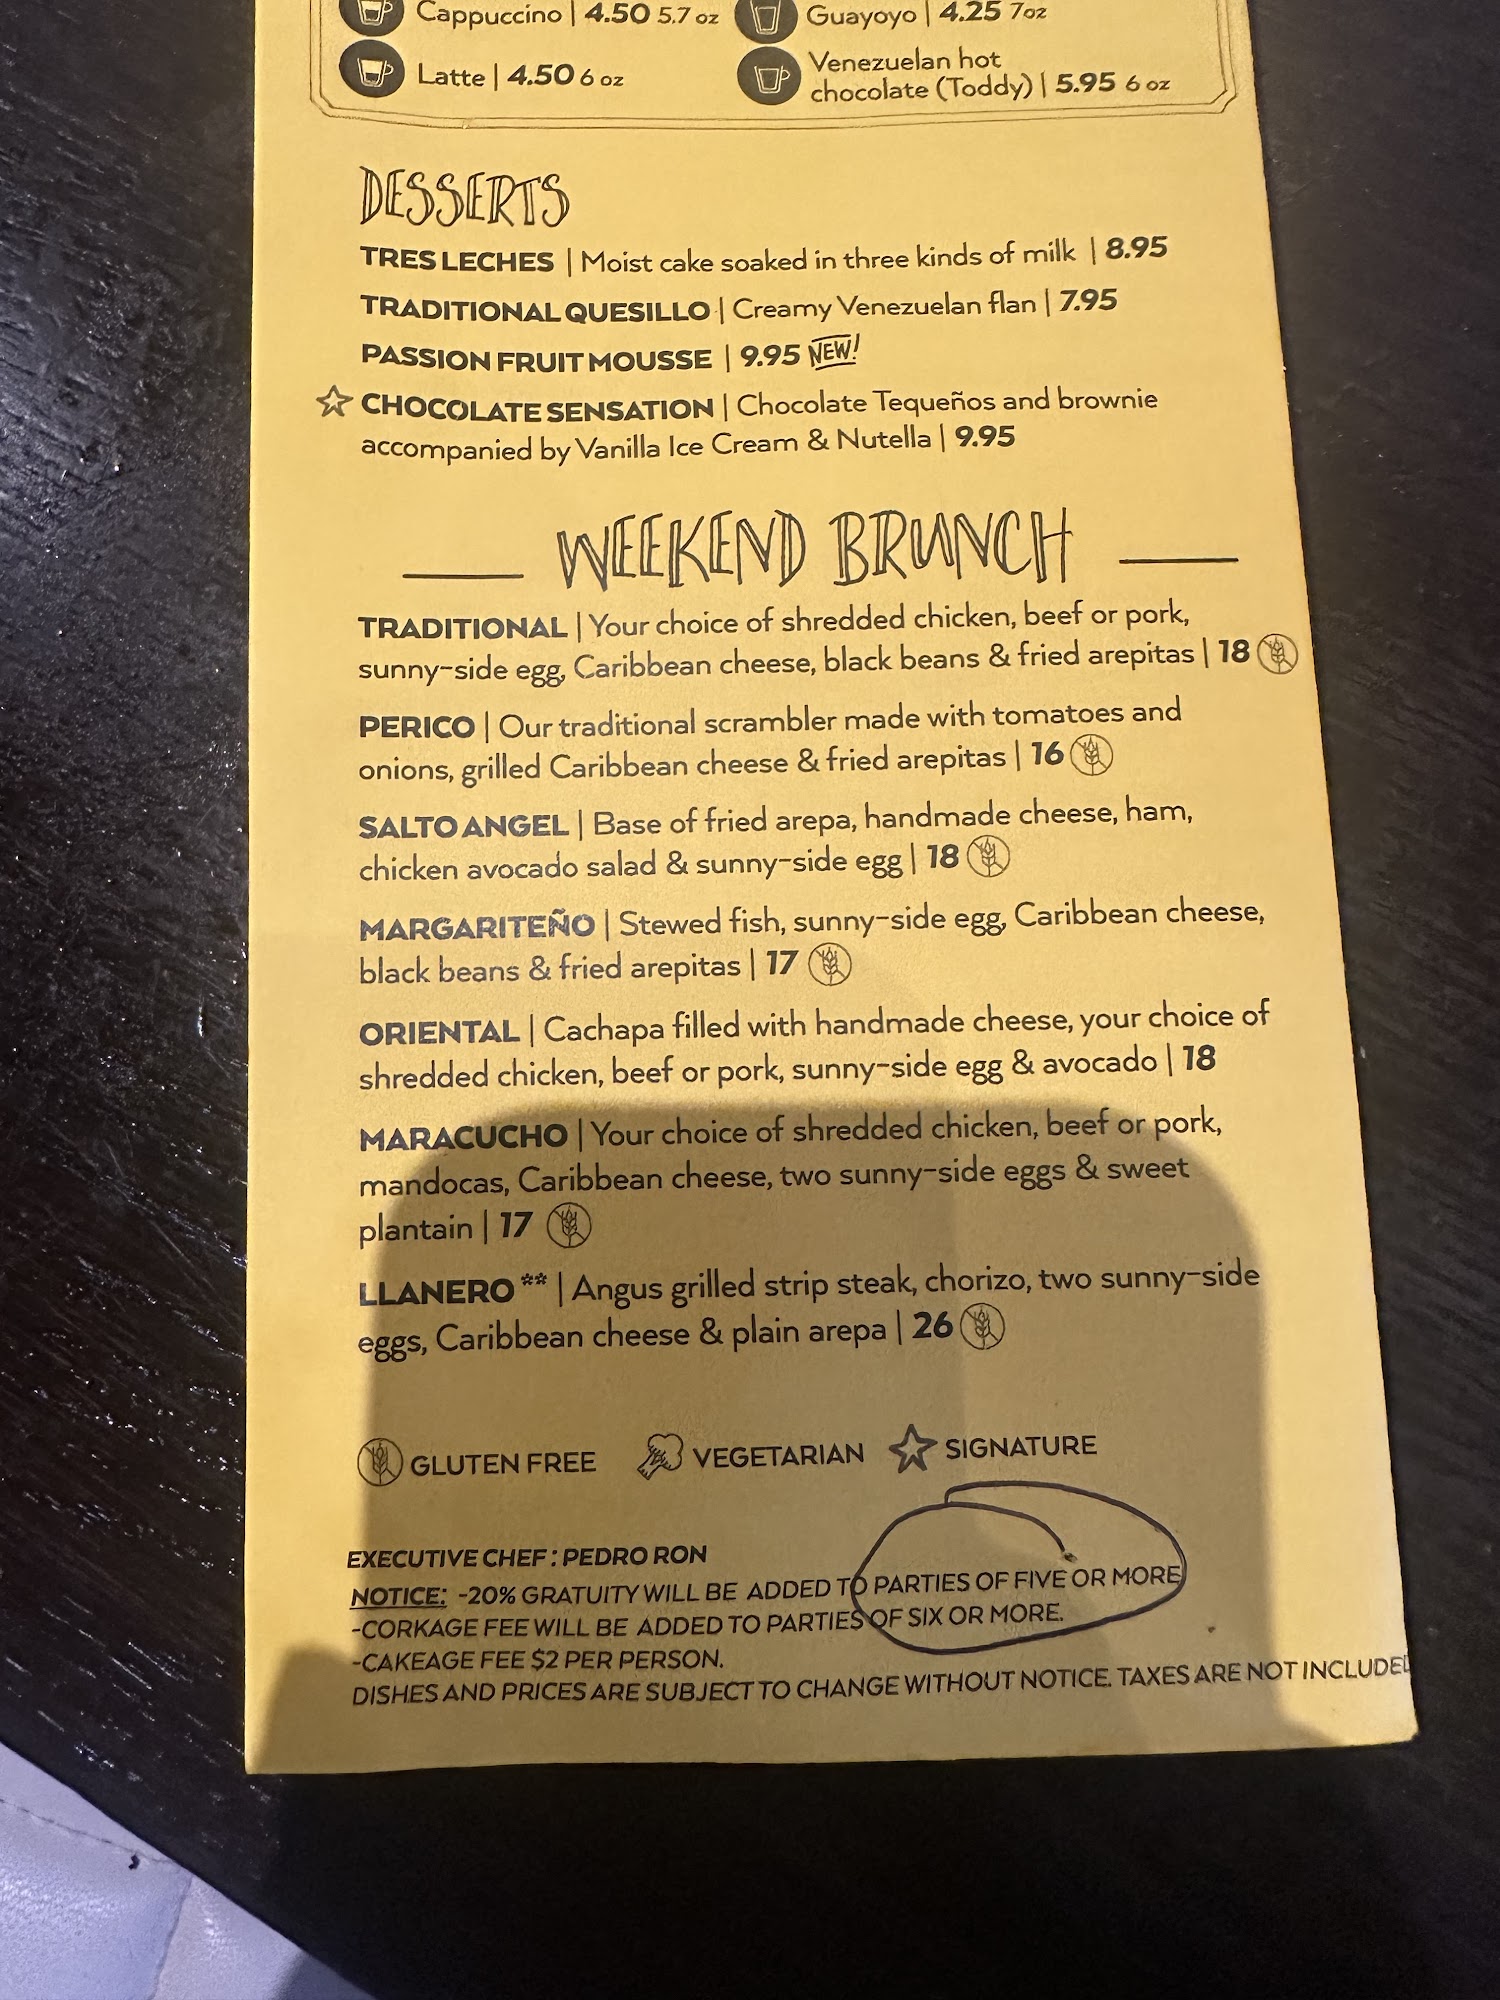 Cappuccino | 4.50 5.7 oz
Guayoyo | 4.25 7oz
Latte | 4.50 6 oz
Venezuelan hot
chocolate (Toddy) | 5.95 6 oz
DESSERTS
TRES LECHES | Moist cake soaked in three kinds of milk | 8.95
TRADITIONAL QUESILLO | Creamy Venezuelan flan | 7.95
PASSION FRUIT MOUSSE | 9.95 NEW!
CHOCOLATE SENSATION | Chocolate Tequeños and brownie
accompanied by Vanilla Ice Cream & Nutella | 9.95
WEEKEND BRUNCH
TRADITIONAL | Your choice of shredded chicken, beef or pork,
sunny-side egg, Caribbean cheese, black beans & fried arepitas | 18
PERICO | Our traditional scrambler made with tomatoes and
onions, grilled Caribbean cheese & fried arepitas | 16
SALTO ANGEL | Base of fried arepa, handmade cheese, ham,
chicken avocado salad & sunny-side egg | 18
MARGARITEÑO | Stewed fish, sunny-side egg, Caribbean cheese,
black beans & fried arepitas | 17
ORIENTAL | Cachapa filled with handmade cheese, your choice of
shredded chicken, beef or pork, sunny-side egg & avocado | 18
MARACUCHO | Your choice of shredded chicken, beef or pork,
mandocas, Caribbean cheese, two sunny-side eggs & sweet
plantain | 17
LLANERO ** | Angus grilled strip steak, chorizo, two sunny-side
eggs, Caribbean cheese & plain arepa | 26
GLUTEN FREE VEGETARIAN SIGNATURE
EXECUTIVE CHEF : PEDRO RON
NOTICE: -20% GRATUITY WILL BE ADDED TO PARTIES OF FIVE OR MORE
-CORKAGE FEE WILL BE ADDED TO PARTIES OF SIX OR MORE.
-CAKEAGE FEE $2 PER PERSON.
DISHES AND PRICES ARE SUBJECT TO CHANGE WITHOUT NOTICE. TAXES ARE NOT INCLUDED